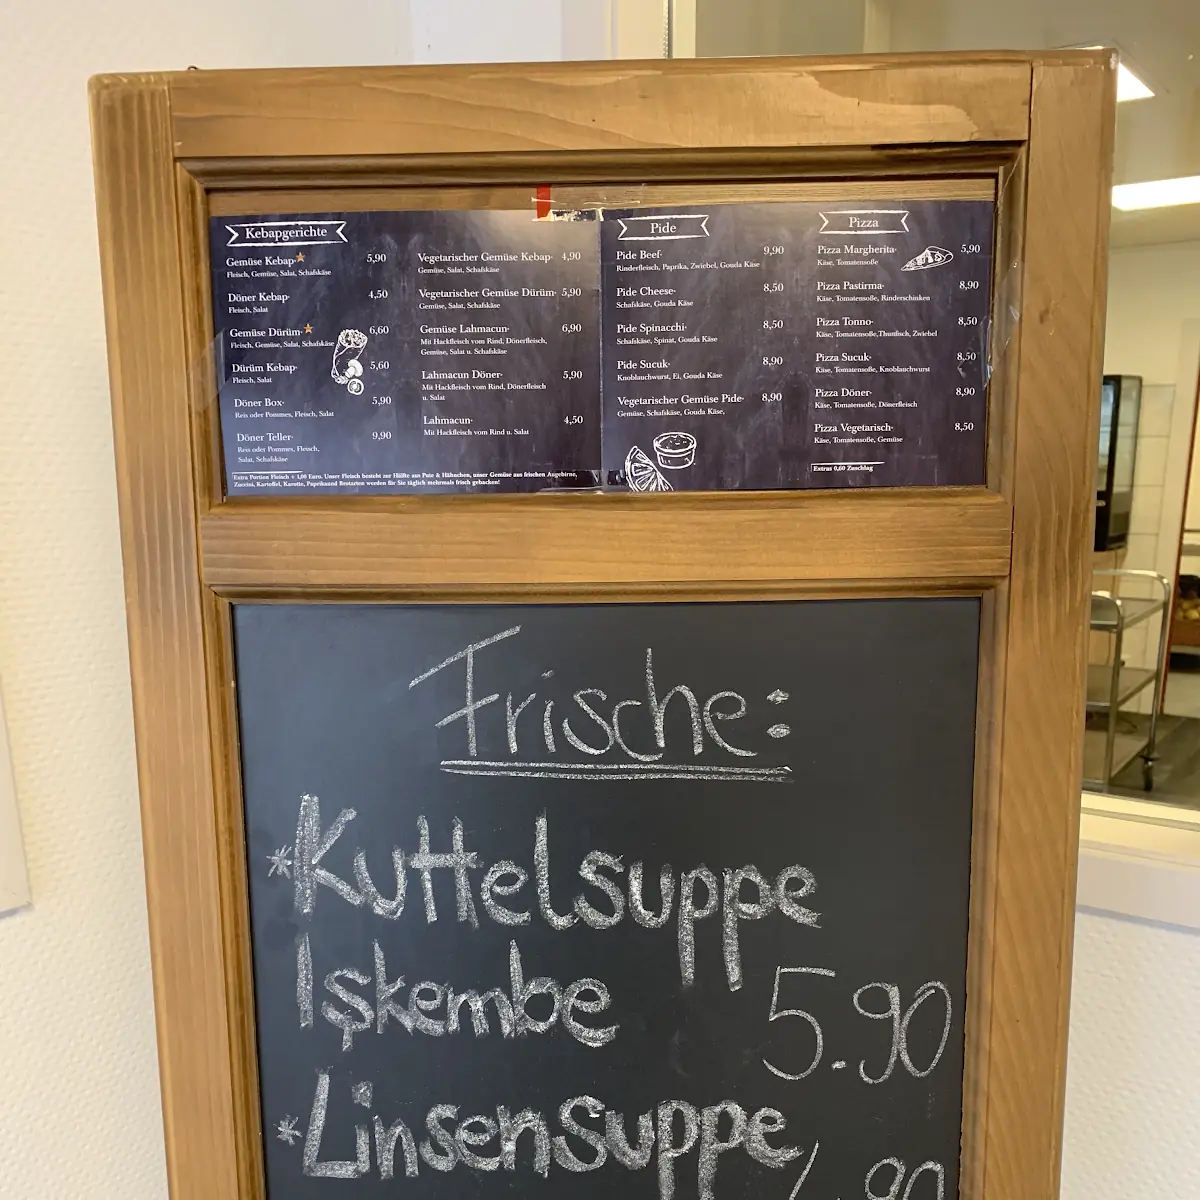 Kebapgerichte
Gemüse Kebap· 5,90
Fleisch, Gemüse, Salat, Schafskäse
Döner Kebap· 4,50
Fleisch, Salat
Gemüse Dürüm· 6,60
Fleisch, Gemüse, Salat, Schafskäse
Dürüm Kebap· 5,60
Fleisch, Salat
Döner Box· 5,90
Reis oder Pommes, Fleisch, Salat
Döner Teller· 9,90
Reis oder Pommes, Fleisch,
Salat, Schafskäse
Vegetarischer Gemüse Kebap· 4,90
Gemüse, Salat, Schafskäse
Vegetarischer Gemüse Dürüm· 5,90
Gemüse, Salat, Schafskäse
Gemüse Lahmacun· 6,90
Mit Hackfleisch vom Rind, Dönerfleisch,
Gemüse, Salat u. Schafskäse
Lahmacun Döner· 5,90
Mit Hackfleisch vom Rind, Dönerfleisch
u. Salat
Lahmacun· 4,50
Mit Hackfleisch vom Rind u. Salat
Extra Portion Fleisch + 1,00 Euro. Unser Fleisch besteht zur Hälfte aus Pute & Hähnchen, unser Gemüse aus frischen Angebirne,
Zuccini, Kartoffel, Karotte, Paprikaund Brotarten werden für Sie täglich mehrmals frisch gebacken!
Pide
Pide Beef· 9,90
Rinderfleisch, Paprika, Zwiebel, Gouda Käse
Pide Cheese· 8,50
Schafskäse, Gouda Käse
Pide Spinacchi· 8,50
Schafskäse, Spinat, Gouda Käse
Pide Sucuk· 8,90
Knoblauchwurst, Ei, Gouda Käse
Vegetarischer Gemüse Pide· 8,90
Gemüse, Schafskäse, Gouda Käse,
Pizza
Pizza Margherita· 5,90
Käse, Tomatensoße
Pizza Pastirma· 8,90
Käse, Tomatensoße, Rinderschinken
Pizza Tonno· 8,50
Käse, Tomatensoße,Thunfisch, Zwiebel
Pizza Sucuk· 8,50
Käse, Tomatensoße, Knoblauchwurst
Pizza Döner· 8,90
Käse, Tomatensoße, Dönerfleisch
Pizza Vegetarisch· 8,50
Käse, Tomatensoße, Gemüse
Extras 0,60 Zuschlag
Frische:
*Kuttelsuppe
Işkembe 5.90
*Linsensuppe
4.90